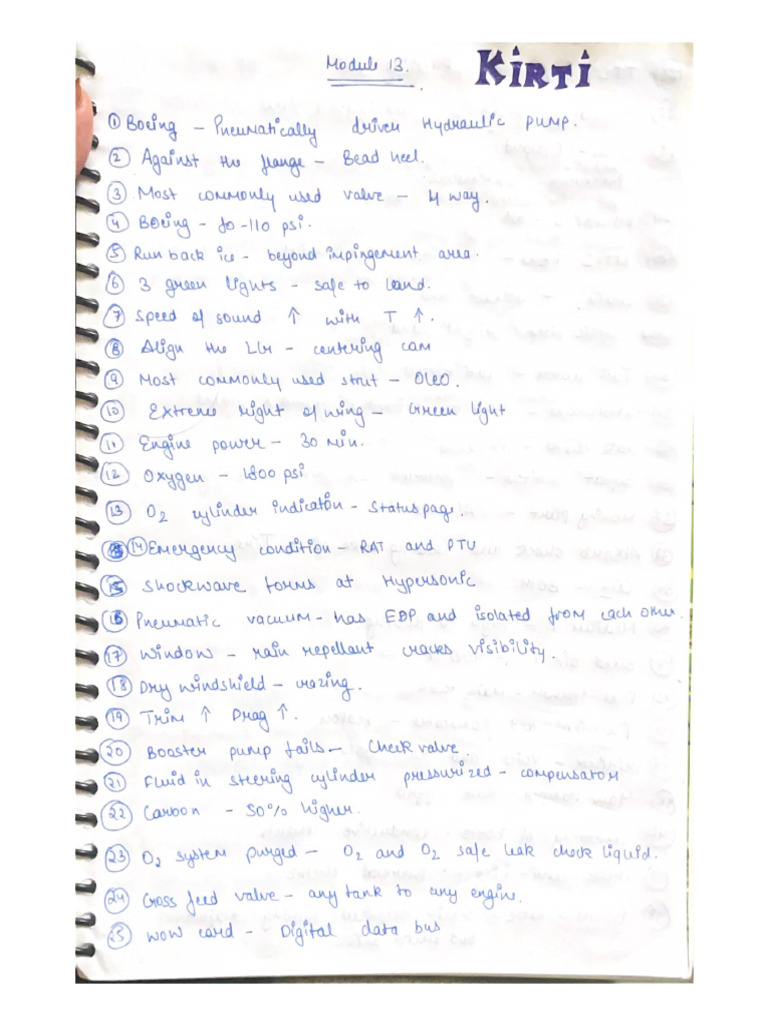 Module 13.
KIRTI
① Boeing – Pneumatically driven Hydraulic pump.
② Against the flange – Bead heel.
③ Most commonly used valve – 4 way.
④ Boeing – 80-110 psi.
⑤ Run back ice – beyond impingement area.
⑥ 3 green lights – safe to land.
⑦ Speed of sound ↑ with T ↑.
⑧ Align the LG – centering cam
⑨ Most commonly used strut – OLEO.
⑩ Extreme right of wing – Green light
⑪ Engine power – 30 min.
⑫ Oxygen – 1800 psi
⑬ O2 cylinder indication – Status page.
⑭ Emergency condition – RAT and PTU
⑮ Shockwave forms at Hypersonic
⑯ Pneumatic vacuum – has EDP and isolated from each other.
⑰ Window – rain repellant cracks visibility.
⑱ Dry windshield – crazing.
⑲ Trim ↑ Drag ↑.
⑳ Booster pump fails – Check valve
㉑ Fluid in steering cylinder pressurized – compensator
㉒ Carbon – 50% higher.
㉓ O2 system purged – O2 and O2 safe leak check liquid.
㉔ Cross feed valve – any tank to any engine.
㉕ WOW card – Digital data bus